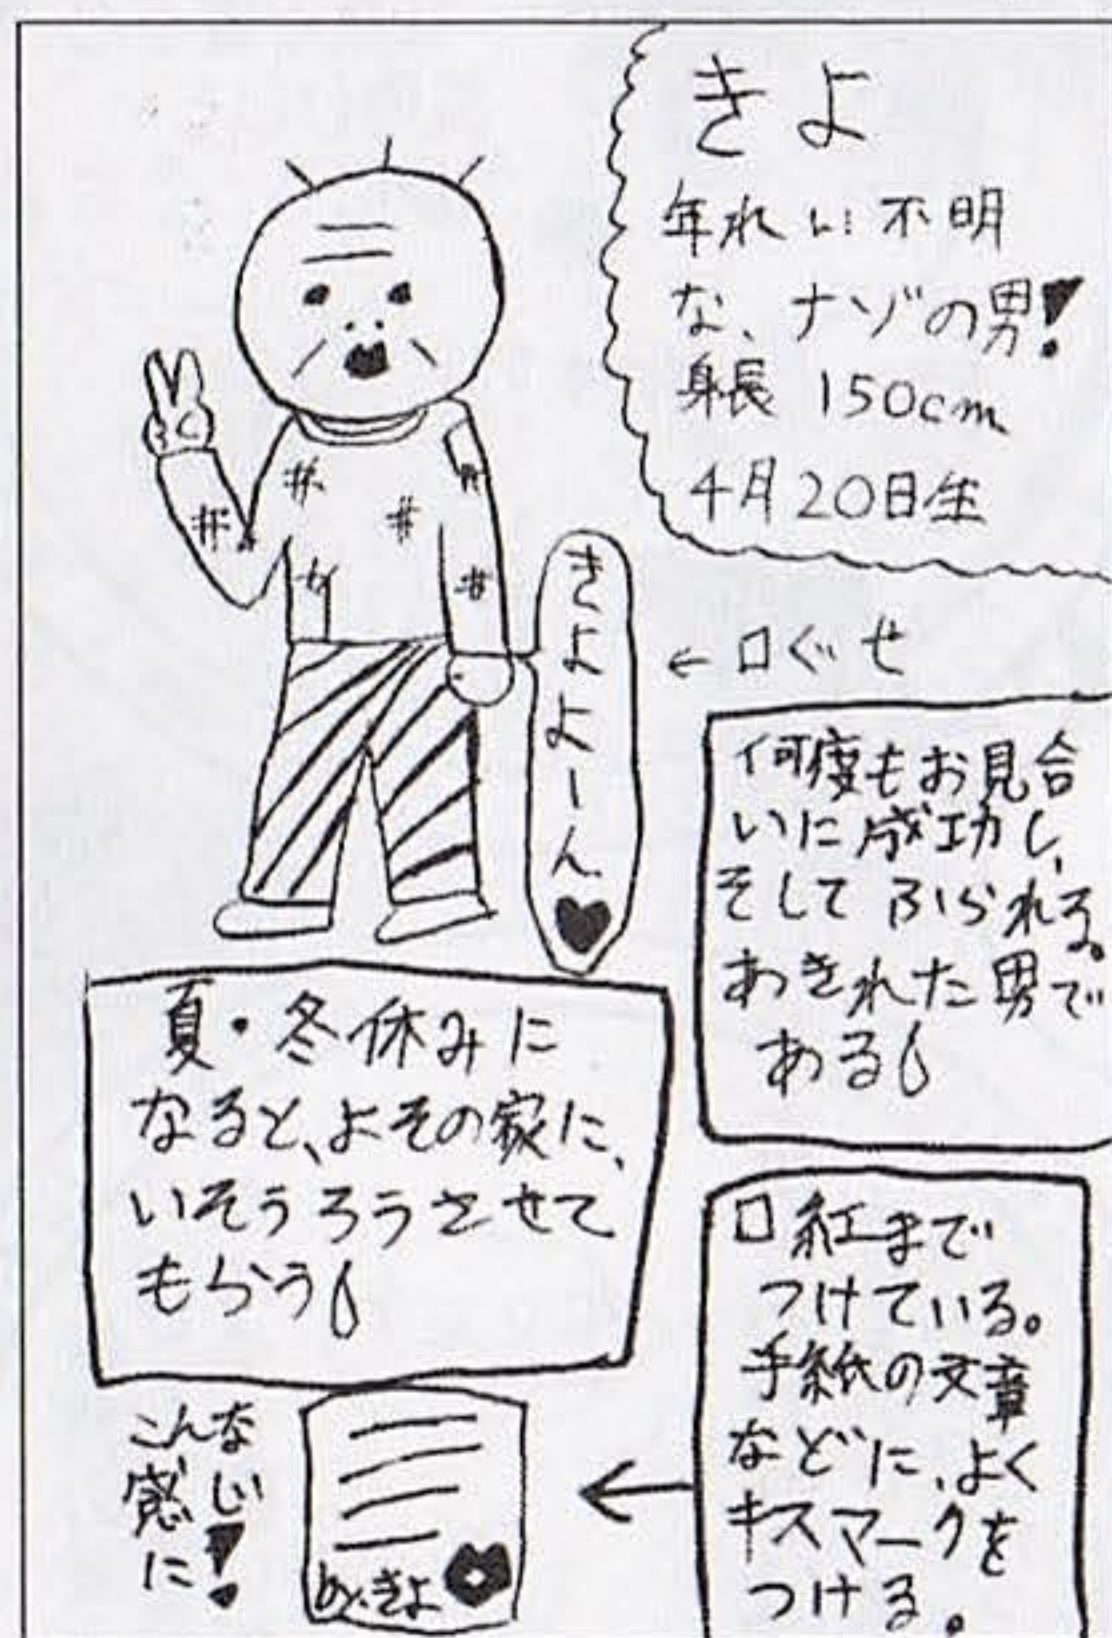 きよ
年れい不明
な、ナゾの男!
身長 150cm
4月20日生
きよよーん♥
←口ぐせ
何度もお見合
いに成功し、
そしてふられる。
あきれた男で
ある
夏・冬休みに
なると、よその家に、
いそうろうさせて
もらう
口紅まで
つけている。
手紙の文章
などに、よく
キスマークを
つける。
こんな
感じ
に!
きよ